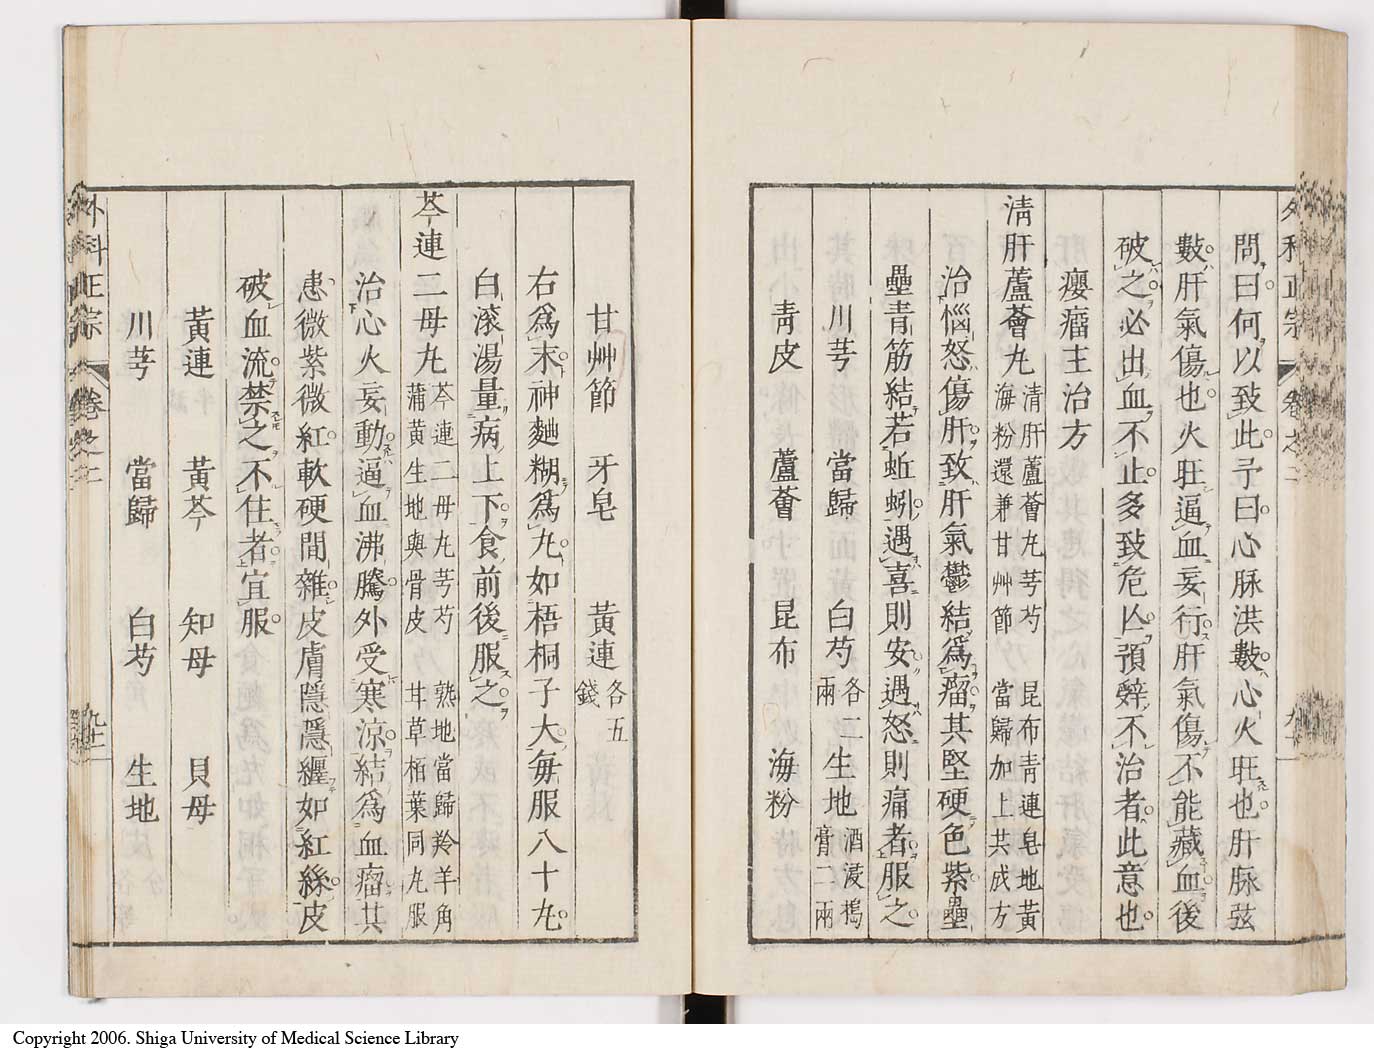 外科正宗 卷之二
問曰何以致此予曰心脉洪數心火旺也肝脉弦
數肝氣傷也火旺逼血妄行肝氣傷不能藏血後
破之必出血不止多致危亾預辤不治者此意也
癭瘤主治方
清肝蘆薈丸 清肝蘆薈丸芎芍 昆布青連皂地黃
海粉還兼甘艸節 當歸加上共成方
治惱怒傷肝致肝氣鬱結爲瘤其堅硬色紫壘
壘青筋結若蚯蚓遇喜則安遇怒則痛者服之
川芎 當歸 白芍 各二兩 生地 酒浸搗膏二兩
青皮 蘆薈 昆布 海粉
甘艸節 牙皂 黃連 各五錢
右爲末神麯糊爲丸如梧桐子大每服八十丸
白滚湯量病上下食前後服之
芩連二母丸 芩連二母丸芎芍 熟地當歸羚羊角
蒲黃生地與骨皮 甘草栢葉同丸服
治心火妄動逼血沸騰外受寒涼結爲血瘤其
患微紫微紅軟硬間雜皮膚隱隱纏如紅絲皮
破血流禁之不住者宜服
黃連 黃芩 知母 貝母
川芎 當歸 白芍 生地
外科正宗 卷之二
Copyright 2006. Shiga University of Medical Science Library